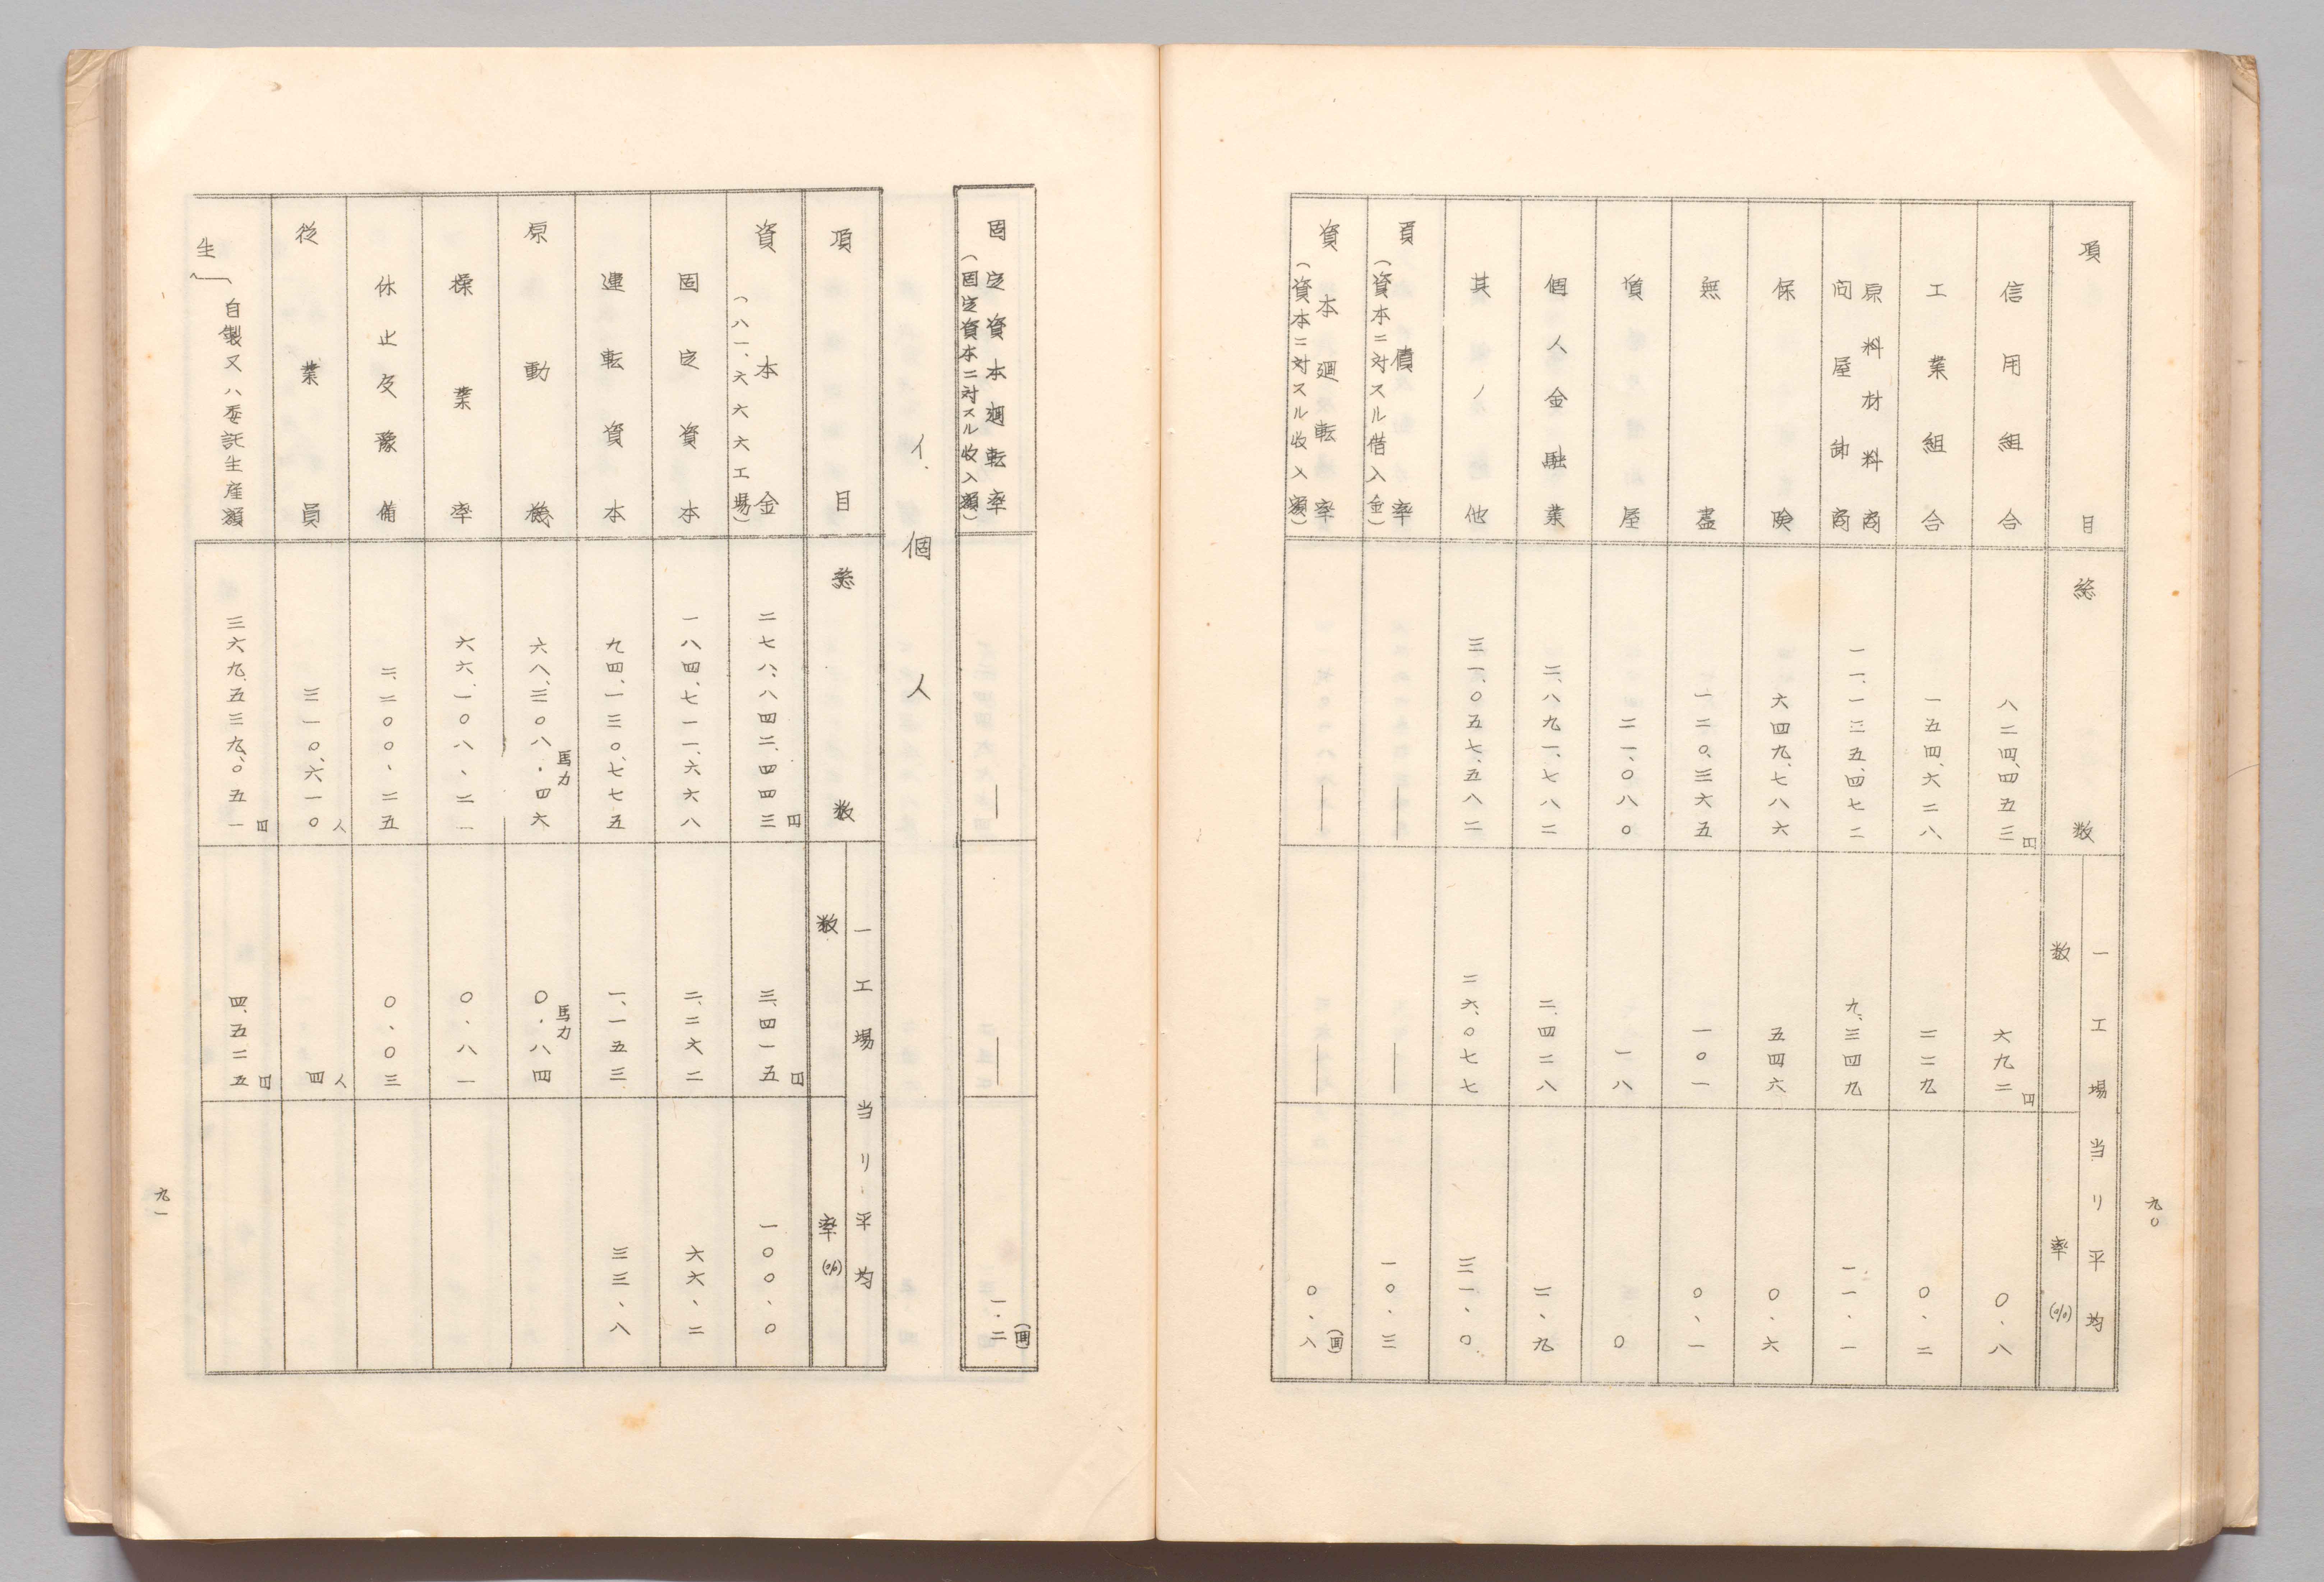 九〇
項目 総数 一工場当リ平均
数 率(%)
信用組合 八二四、四五三円 六九二円 〇・八
工業組合 一五四、六二八 一二九 〇・二
原料材料商
問屋卸商 一一、一三五、四七二 九、三四九 一一・一
保険 六四九、七八六 五四六 〇・六
無盡 一二〇、三六五 一〇一 〇、一
質屋 二一、〇八〇 一八 〇
個人金融業 二、八九一、七八二 二、四二八 二、九
其ノ他 三一、〇五七、五八二 二六、〇七七 三一、〇
負債率 — — 一〇・三
(資本ニ対スル借入金)
資本廻転率 — — 〇・八(回)
(資本ニ対スル收入額)
固定資本廻転率 — — 一・二(回)
(固定資本ニ対スル收入額)
イ.個人
項目 総数 一工場当リ平均
数 率(%)
資本金 二七八、八四二、四四三円 三、四一五円 一〇〇、〇
(八一、六六六工場)
固定資本 一八四、七一一、六六八 二、二六二 六六、二
運転資本 九四、一三〇、七七五 一、一五三 三三、八
原動機 六八、三〇八・四六馬力 〇・八四馬力
操業率 六六、一〇八、二一 〇・八一
休止及豫備 二、二〇〇、二五 〇・〇三
従業員 三一〇、六一〇人 四人
生 自製又ハ委託生産額 三六九、五三九、〇五一円 四、五二五円
九一